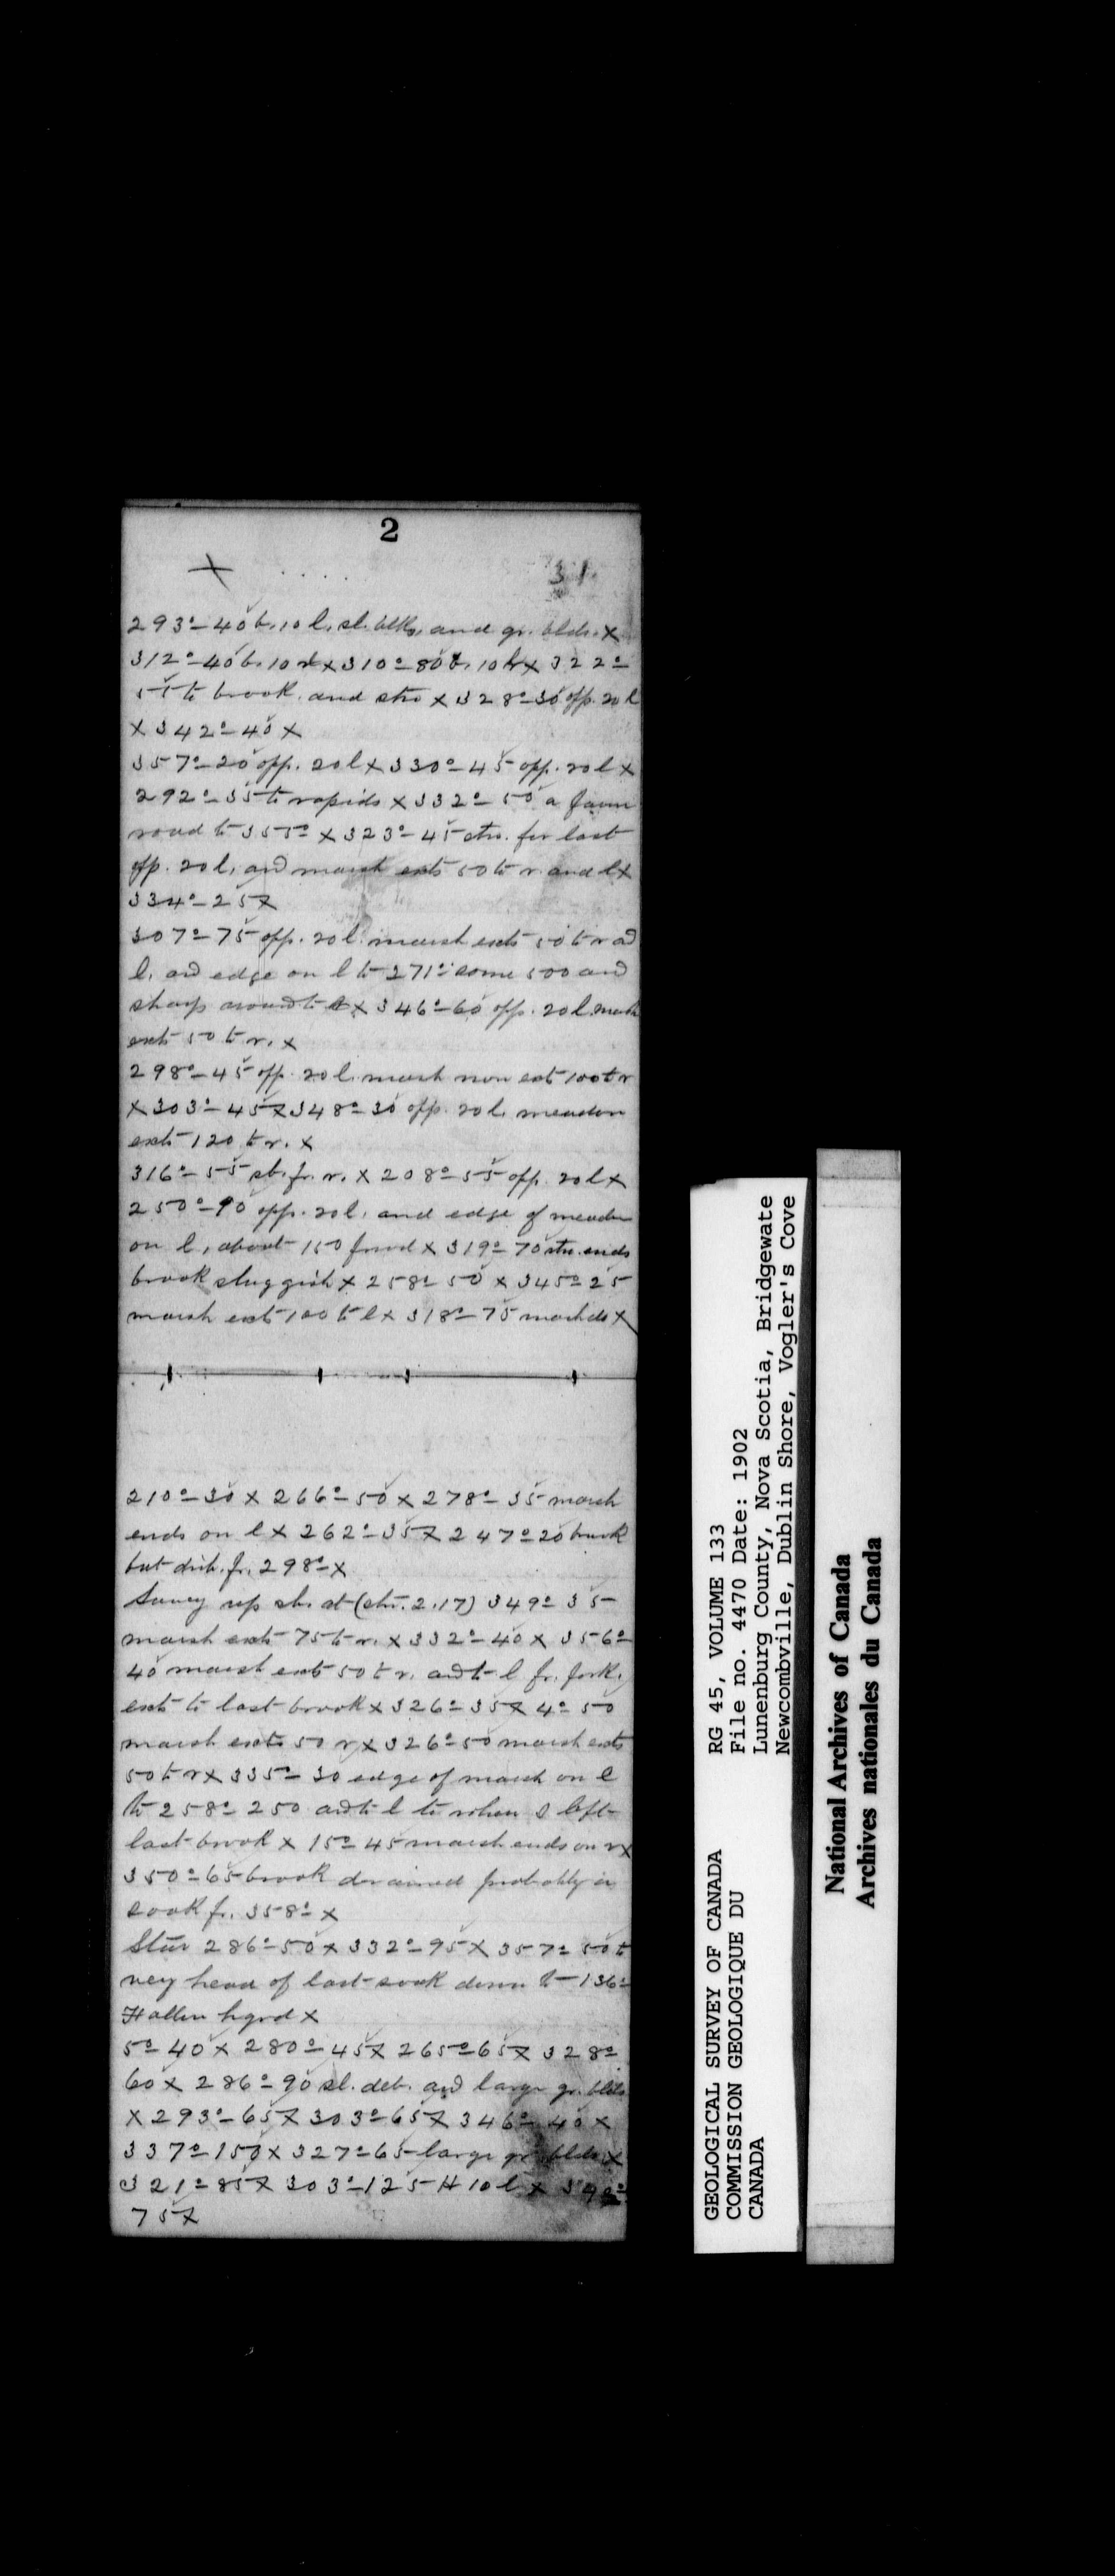 2
31
293º-40 b. 10 l. sl. blks. and gr. blds. x
312º-40 b. 10 x 310º-80 b. 10 x 322º
55 to brook and str x 328º-30 opp. 20 l
x 342º-40 x
357º-20 opp. 20 l x 330º-45 opp. 20 l x
292º-35 to rapids x 332º-50 a farm
road to 355º x 323º-45 str. for last
opp. 20 l, and marsh exts 50 to r. and l x
334º-25 x
307º-75 opp. 20 l marsh exts 50 to r ad
l. and edge on l to 271º some 500 and
sharp around to x 346º-60 opp. 20 l marsh
exts 50 to r. x
298º-45 opp. 20 l. marsh now ext 100 to r
x 303º-45 x 348º-30 opp. 20 l. meadow
exts 120 to r. x
316º-55 sb. fr. r. x 208º-55 opp. 20 l x
250º-90 opp. 20 l. and edge of meadow
on l, about 150 x 319º-70 str. ends
brook sluggish x 258º-50 x 345º-25
marsh ext 100 to l x 318º-75 x
210º-30 x 266º-50 x 278º-35 marsh
ends on l x 262º-35 x 247º-20 brook
but fr. 298º-x
Survey up sb. at (str. 2.17) 349º-35
marsh exts 75 to r. x 332º-40 x 356º
40 marsh exts 50 to r. and to l fr. fork,
exts to last brook x 326º-35 x 4º-50
marsh exts 50 r x 326º-50 marsh exts
50 to r x 335º-30 edge of marsh on l
to 258º-250 and to l to when I left
last brook x 15º-45 marsh ends on r x
350º-65 brook drained probably in
sook fr. 358º-x
Stur 286º-50 x 332º-95 x 357º-50 to
very head of last sook down to 136º
x
5º-40 x 280º-45 x 265º-65 x 328º
60 x 286º-90 sl. deb. and large gr. blds
x 293º-65 x 303º-65 x 346º-40 x
337º-150 x 327º-65 large gr. blds. x
321º-85 x 303º-125 H 10 l x
75 x
GEOLOGICAL SURVEY OF CANADA
COMMISSION GEOLOGIQUE DU
CANADA
RG 45, VOLUME 133
File no. 4470 Date: 1902
Lunenburg County, Nova Scotia, Bridgewate
Newcombville, Dublin Shore, Vogler's Cove
National Archives of Canada
Archives nationales du Canada